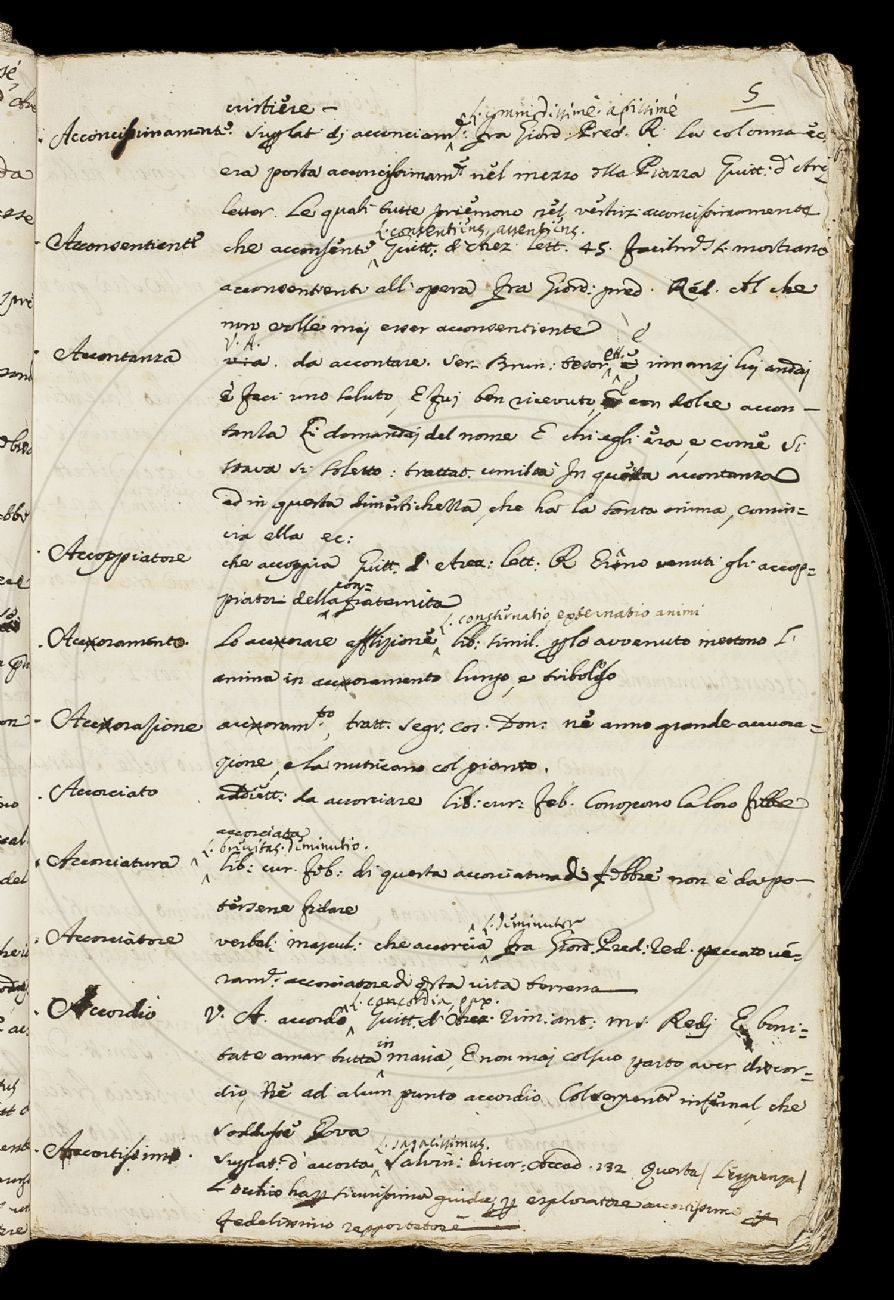 5
virtiere —
L. commodissimè. aptissimè
Acconcissimamente. Superlat: di acconciam.te Fra Giord: Pred. R. la colonna
era posta acconcissimam.te nel mezzo della Piazza Guitt: d'Are-
letter. Le quali tutte priemono nel vestirsi acconcissimamente
L. consentiens, assentiens.
Acconsentiente che acconsente Guitt: d'Arez. lett. 45. mostrano
acconsentienti all'opera Fra Giord: pred. Red. Al che
non volle mai esser acconsentiente
V. A.
Accontanza da accontare. Ser. Brun: Tesor. innanzi lui andai
e feci uno saluto, E fui ben ricevuto, E con dolce accon-
tanza domandai del nome E chi egli era, e come si
stava si soletto: trattat. umiltà In questa accontanza
ed in questa dimestichezza, che ha la santa anima, comin=
cia ella ec:
Accoppiatore che accoppia Guitt. d'Arez: lett: R Erano venuti gli accop=
piatori della con=
fraternita
L. consternatio, externatio animi
Accoramento. Lo accorare afflizione lib: simil. avvenuto mettono l'
anima in accoramento lungo, e
Accorazione accoram.to, tratt. segr. cos. Don: ne anno grande accora=
zione, e la nutricano col pianto.
Accorciato addiett: da accorciare lib: cur: feb. Conoscono la loro febbre
accorciata
L. brevitas. diminutio.
Accorciatura lib: cur. feb: di questa accorciatura di febbre non è da po-
tersene fidare
L. diminutor
Accorciatore verbal: mascul: che accorcia Fra Giord: Pred: Red. peccato ve=
ram.te accorciatore di q.sta vita terrena
L. concordia, pax.
Accordio V. A. accordo Guitt. d'Arez. Rim: ant: ms. Redi E boni=
tate amar tutta in
maia, E non mai col suo parto aver discor=
dio, Nè ad alcun punto accordio Col serpente infernal, che
sodusse Eva
L. sagacissimus.
Accortissimo. Superlat: d'accorto Salvin: discor: Accad. 132 Questa
L'occhio ha sicurissima guida, esploratore accortissimo
fedelissimo rapportatore